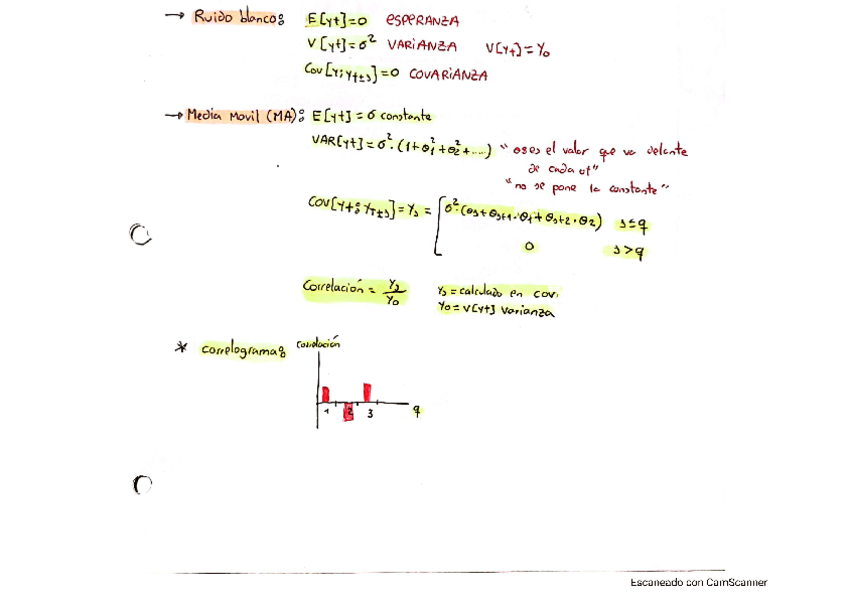 → Ruido blanco: E[yt]=0 ESPERANZA
V[yt]=σ² VARIANZA V[yt]=γ₀
Cov[y;yt±s]=0 COVARIANZA
→ Media Movil (MA): E[yt] = σ constante
VAR[yt]=σ².(1+θ₁²+θ₂²+....) "oses el valor que va delante
de cada at"
"no se pone la constante"
COV[yt;yt±s]=γs = [σ².(θs+θs+1.θ1+θs+2.θ2) s≤q
0 s>q
Correlación = γs/γ₀ γs = calculado en cov.
γ₀ = V[yt] varianza
* correlograma: Correlación
1 2 3 q
Escaneado con CamScanner